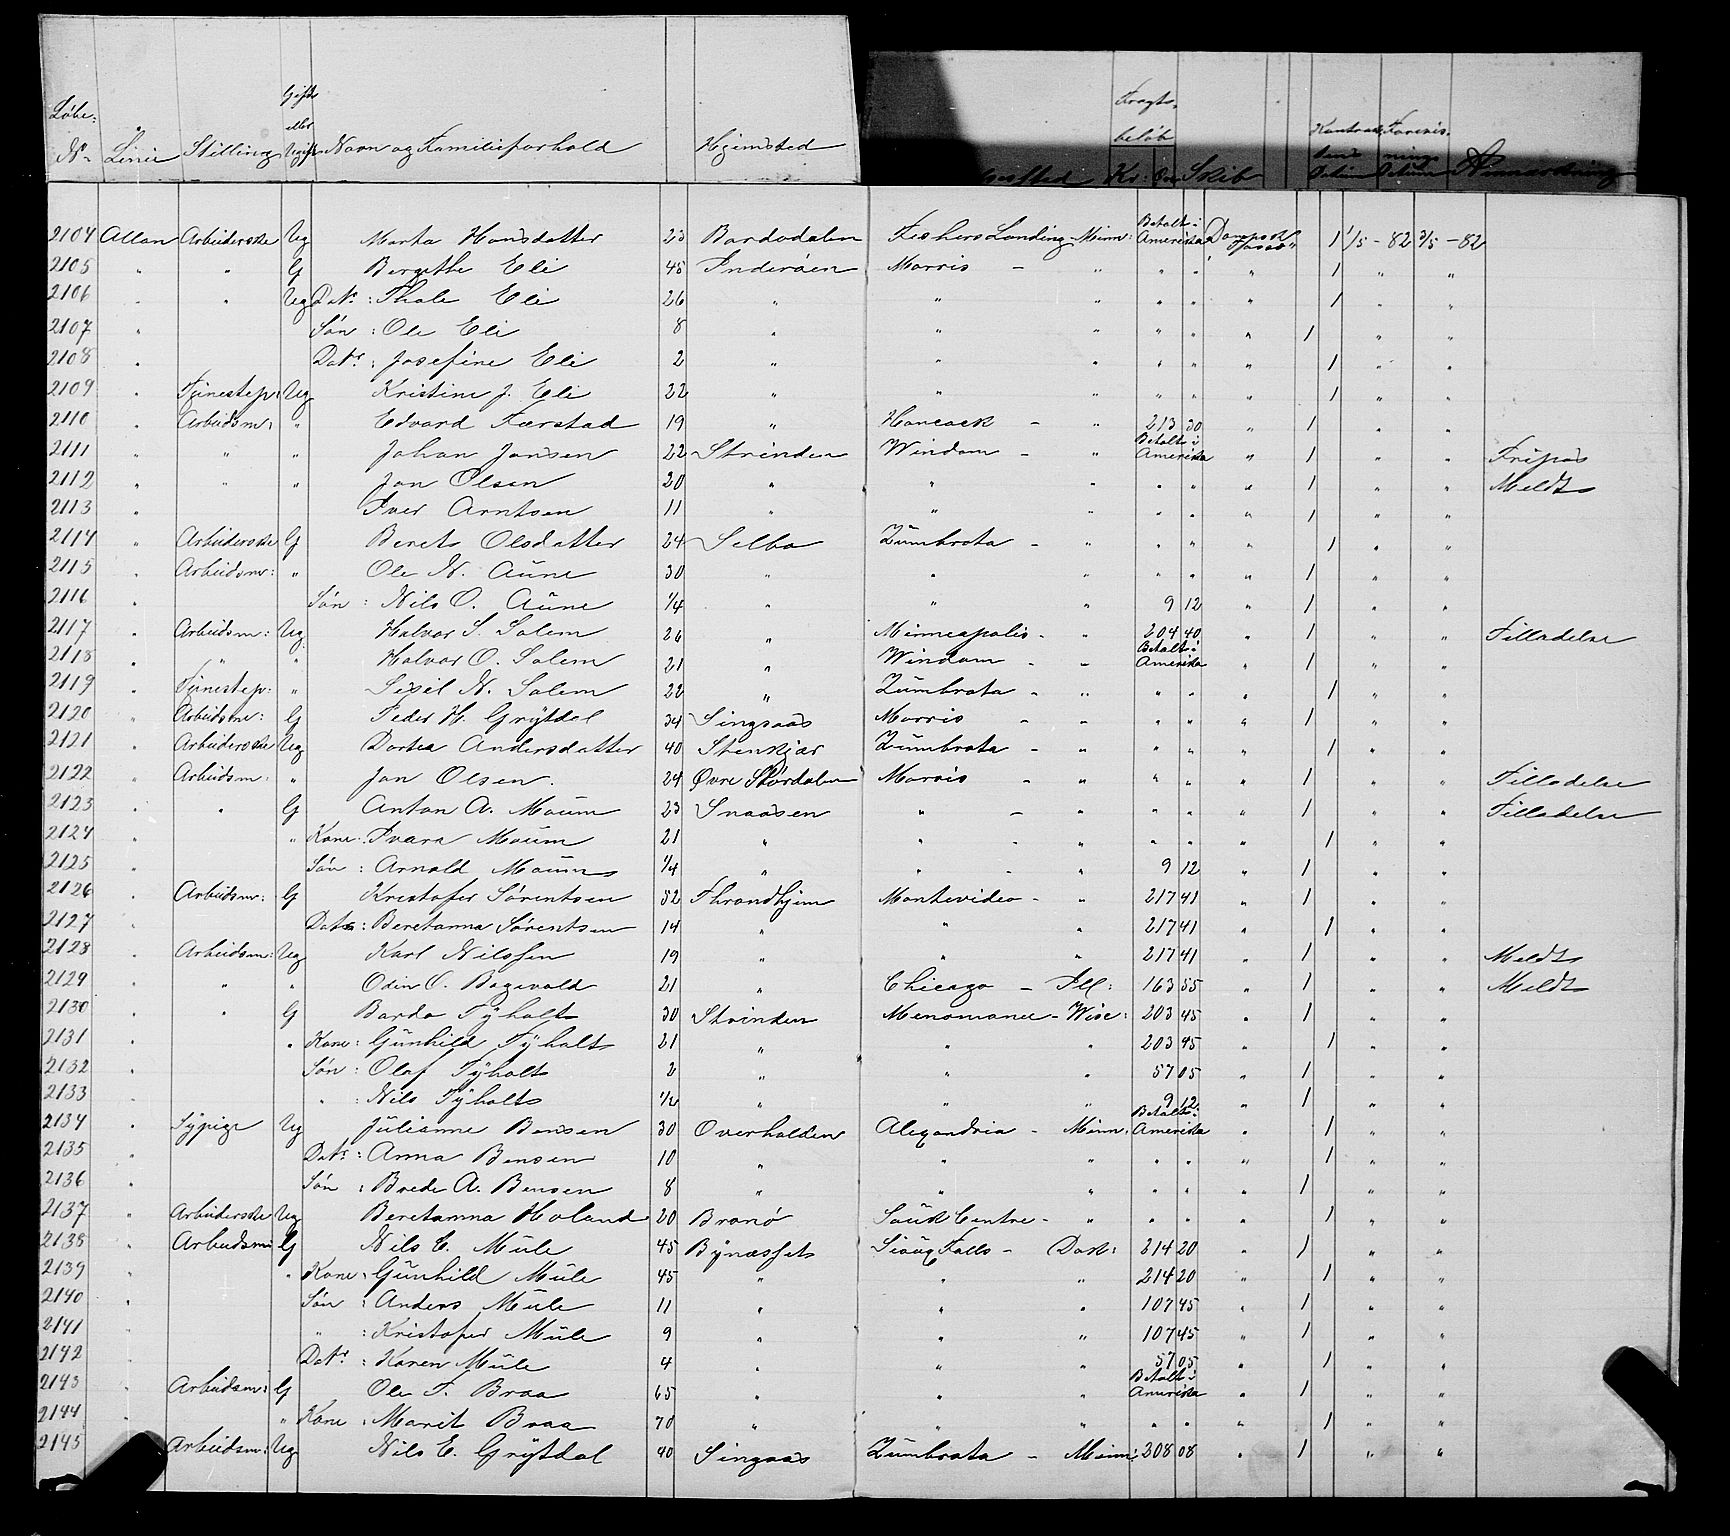 Løbe: N° Linie Stilling Gift eller Ugift Navn og Familieforhold Hjemsted Fragtbeløb Kr: Øre Skib Kontraktens Datum Forevisnings Datum Anmærkning
2104 Allan Arbeiderske Ug Marta Hansdatter 23 Bardodalen Fishers Landing - Minn: Betalt i Amerika Dampsk 1 1/5 - 82 3/5 - 82
2105 " " G Bergitte Eli 45 Inderøen Morris - " " " " 1 " "
2106 " " Ug Datr: Thale Eli 26 " " " " " " 1 " "
2107 " Søn: Ole Eli 8 " " " " " " 1 " "
2108 " Datr: Josefine Eli 2 " " " " " " 1 " "
2109 " Tjenestep: Ug Kristine J. Eli 22 " " " " " " 1 " "
2110 " Arbeidsm: " Edvard Færstad 19 " Hancock - " 213 30 " 1 " "
2111 " " " Johan Jansen 22 Strinden Windom - " Betalt i Amerika " 1 " " Fripas
2112 " " " Jon Olsen 20 " " " " " " 1 " " Meldt
2113 " Iver Arntsen 11 " " " " " " 1 " "
2114 " Arbeiderske G Beret Olsdatter 24 Selbo Zumbrota - " " " " 1 " "
2115 " Arbeidsm: " Ole N. Aune 30 " " " " " " 1 " "
2116 " Søn: Nils O. Aune 1/4 " " " 9 12 " 1 " "
2117 " Arbeidsm: Ug Halvor S. Solem 26 " Minneapolis - " 204 40 " 1 " " Tilladelse
2118 " " " Halvor O. Solem 21 " Windom - " Betalt i Amerika " 1 " "
2119 " Tjenestep: " Sesil N. Solem 22 " Zumbrota - " " " " 1 " "
2120 " Arbeidsm: G Peder H. Grytdal 34 Singsaas Morris - " " " " 1 " "
2121 " Arbeiderske Ug Dortea Andersdatter 40 Stenkjær Zumbrota - " " " " 1 " "
2122 " Arbeidsm: " Jon Olsen. 24 Øvre Størdalen Morris - " " " " 1 " " Tilladelse
2123 " " G Anton A. Moum 23 Snaasen " - " " " " 1 " " Tilladelse
2124 " " Kone: Ivara Moum 21 " " - " " " " 1 " "
2125 " Søn: Arnold Moum 1/4 " " - " 9 12 " 1 " "
2126 " Arbeidsm: G Kristofer Sørentsen 52 Throndhjem Montevideo - " 217 41 " 1 " "
2127 " Datr: Beretanna Sørentsen 14 " " " 217 41 " 1 " "
2128 " Arbeidsm: Ug Karl Nilssen 19 " " " 217 41 " 1 " " Meldt
2129 " " " Odin O. Bagevold 21 " Chicago - Ill: 163 55 " 1 " " Meldt
2130 " " G Bardo Tyholt 30 Strinden Menomonee - Wisc: 203 45 " 1 " "
2131 " " Kone: Gunhild Tyholt 21 " " " 203 45 " 1 " "
2132 " Søn: Olaf Tyholt 2 " " " 57 05 " 1 " "
2133 " " : Nils Tyholt 1/2 " " " 9 12 " 1 " "
2134 " Sypige Ug Julianne Bensen 30 Overhalden Alexandria - Minn: Betalt i Amerika " 1 " "
2135 " Datr: Anna Bensen 10 " " " " " " 1 " "
2136 " Søn: Brede A. Bensen 8 " " " " " " 1 " "
2137 " Arbeiderske Ug Beretanna Holand 20 Brønø Sauk Centre - " " " " 1 " "
2138 " Arbeidsm: G Nils C. Mule 45 Bynæsset Sioux Falls - Dak: 214 20 " 1 " "
2139 " " Kone: Gunhild Mule 45 " " " 214 20 " 1 " "
2140 " Søn: Anders Mule 11 " " " 107 45 " 1 " "
2141 " " : Kristofer Mule 9 " " " 107 45 " 1 " "
2142 " Datr: Karen Mule 4 " " " 57 05 " 1 " "
2143 " Arbeidsm: G Ole T. Braa 65 " " " Betalt i Amerika " 1 " "
2144 " " Kone: Marit Braa 70 " " " " " " 1 " "
2145 Arbeidsm: Ug Nils E. Grytdal 40 Singsaas Zumbrota - Minn: 208 08 " 1 " "